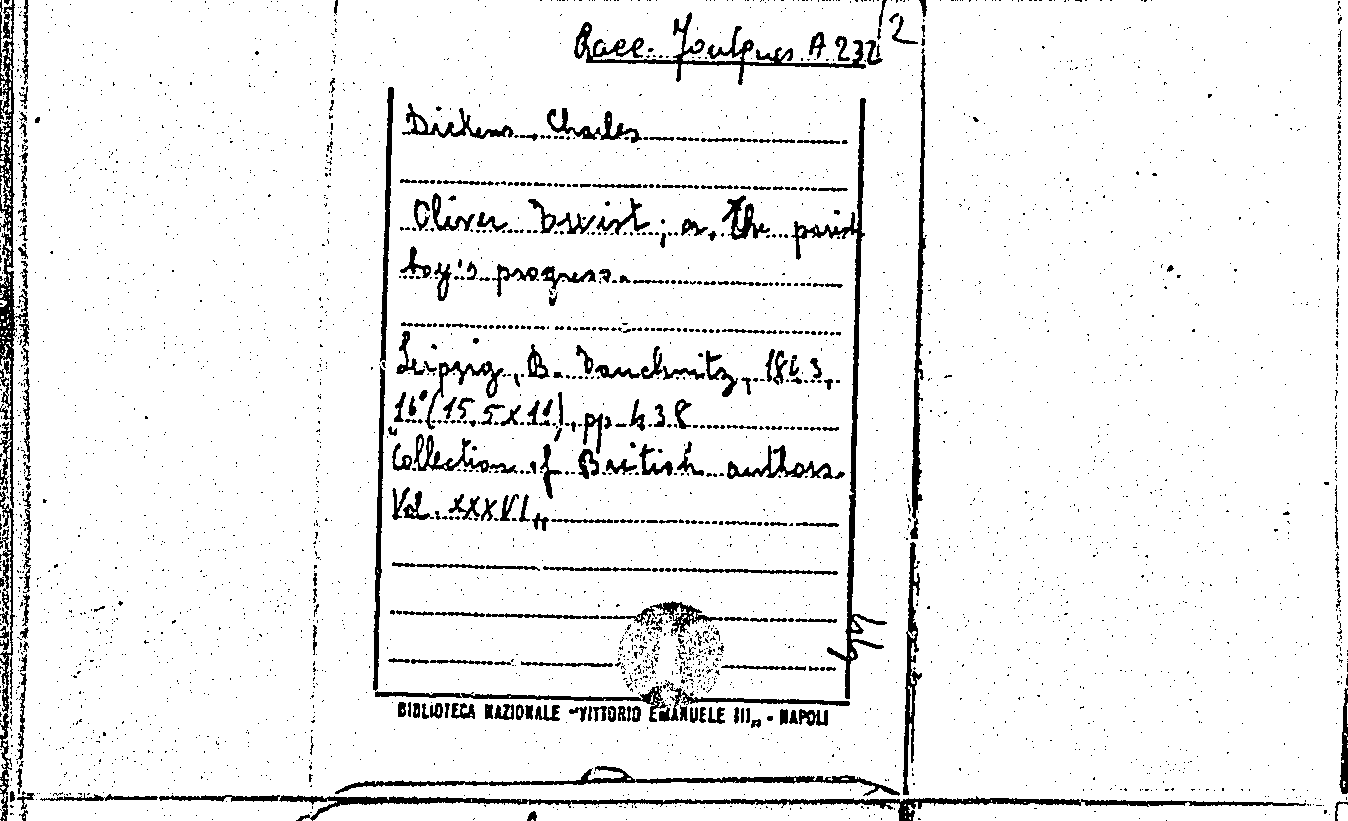 Racc. Foulques A 232/2
Dickens, Charles
Oliver Twist; or, the parish
boy's progress.
Leipzig, B. Tauchnitz, 1843,
16° (15,5x11), pp. 438
"Collection of British authors.
Vol. XXXVI„
BIBLIOTECA NAZIONALE "VITTORIO EMANUELE III„ - NAPOLI